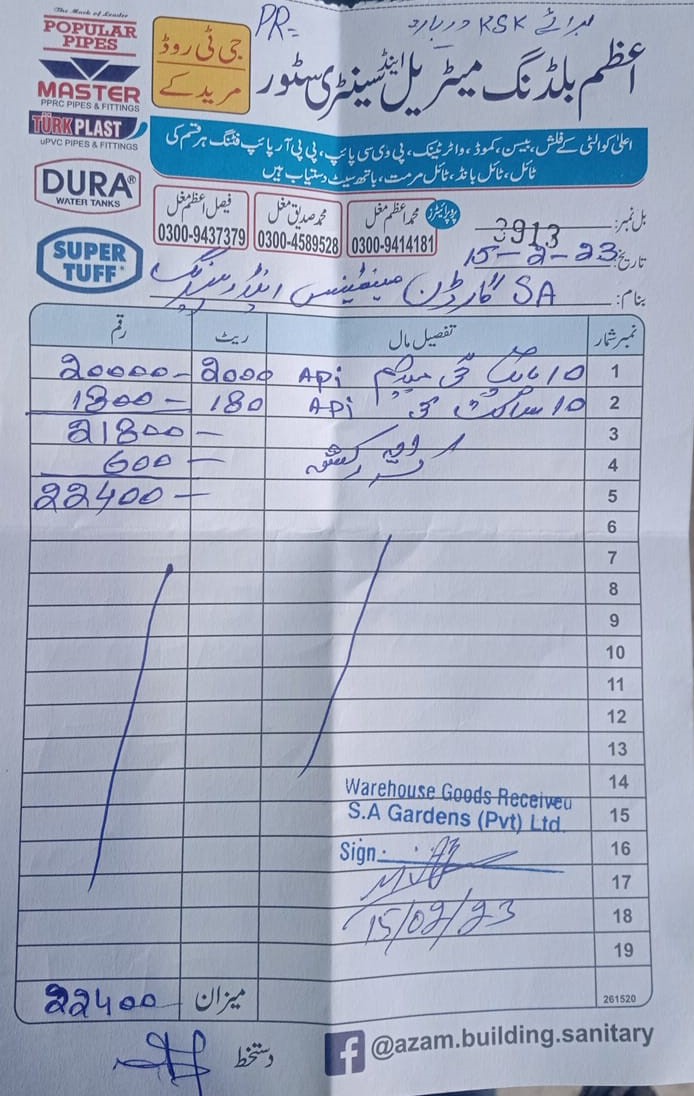 The Mark of Leader
POPULAR PIPES
MASTER
PPRC PIPES & FITTINGS
TÜRK PLAST
uPVC PIPES & FITTINGS
DURA®
WATER TANKS
SUPER TUFF®
PR=
برائے KSK دربار
جی ٹی روڈ
مریدکے
اعظم بلڈنگ میٹریل اینڈ سینٹری سٹور
اعلیٰ کوالٹی کے فلش، بیسن، کموڈ، واٹر ٹینک، پی وی سی پائپ، پی پی آر پائپ فٹنگ ہر قسم کی
ٹائل، ٹائل بانڈ، ٹائل مرمت، باتھ سیٹ دستیاب ہیں
پروپرائیٹرز
محمد اعظم مغل 0300-9414181
محمد صدیق مغل 0300-4589528
فیصل اعظم مغل 0300-9437379
بل نمبر: 3913
تاریخ: 15-2-23
بنام: SA گارڈن مینٹینس اینڈ
نمبر شمار تفصیل مال ریٹ رقم
1 10 پائپ Api 2000 20000
2 10 ساکٹ Api 180 1800
3 21800
4 رکشہ 600
5 22400
6
7
8
9
10
11
12
13
14
15
16
17
18
19
Warehouse Goods Received
S.A Gardens (Pvt) Ltd.
Sign:
15/02/23
میزان 22400
261520
دستخط
@azam.building.sanitary